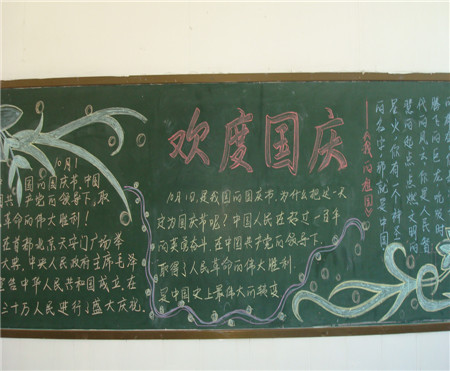 欢度国庆
10月1
国的国庆节,中国
国共产党的领导下,取
革命的伟大胜利!
在首都北京天安门广场举
大典,中央人民政府主席毛泽
宣告中华人民共和国成立在
三十万人民进行了盛大庆祝.
10月1日,是我国的国庆节,为什么把这一天
定为国庆节呢?中国人民在经过一百年
的英勇奋斗,在中国共产党的领导下,
取得了人民革命的伟大胜利
是中国史上最伟大的转变
——《我的祖国》
腾飞的巨龙
代的风云,你是人民智
慧的起点,点燃文明的
星火,你有一个神圣
的名字,那就是中国